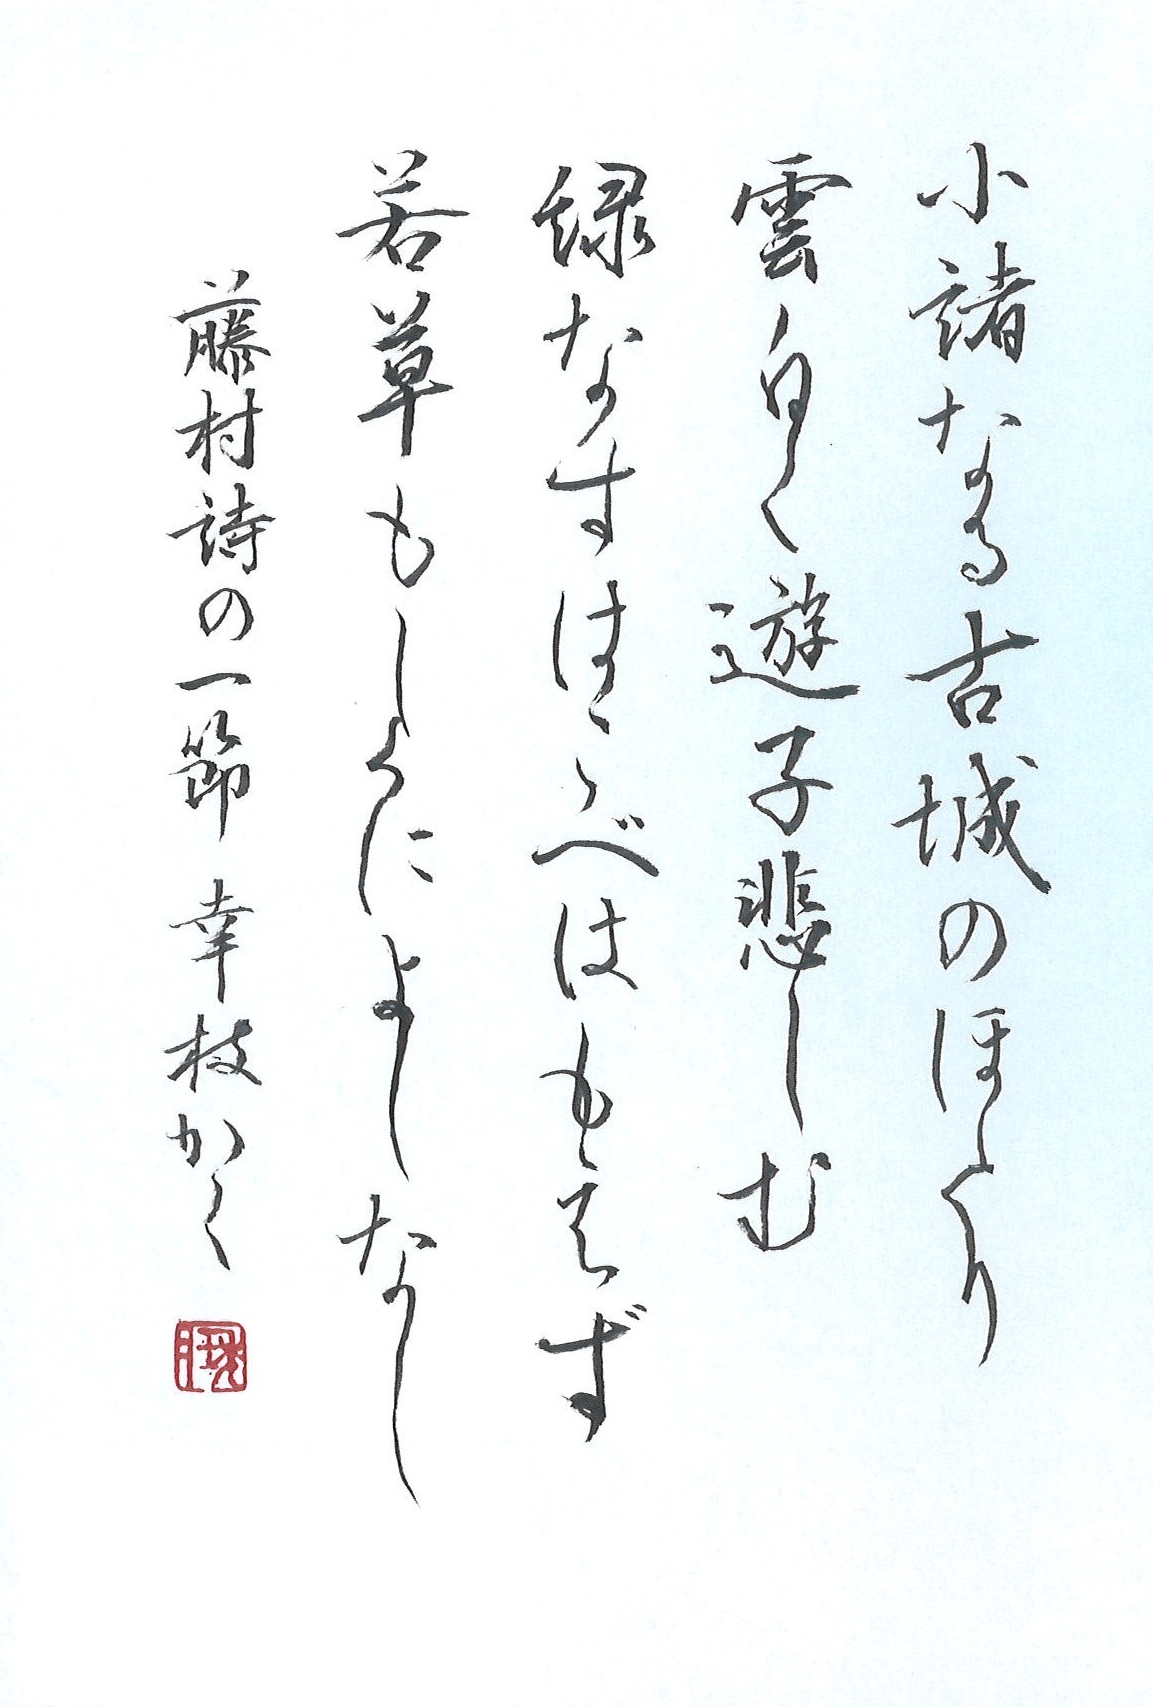 小諸なる古城のほとり
雲白く遊子悲しむ
緑なすはこべはもえず
若草もしくによしなし
藤村詩の一節 幸枝かく